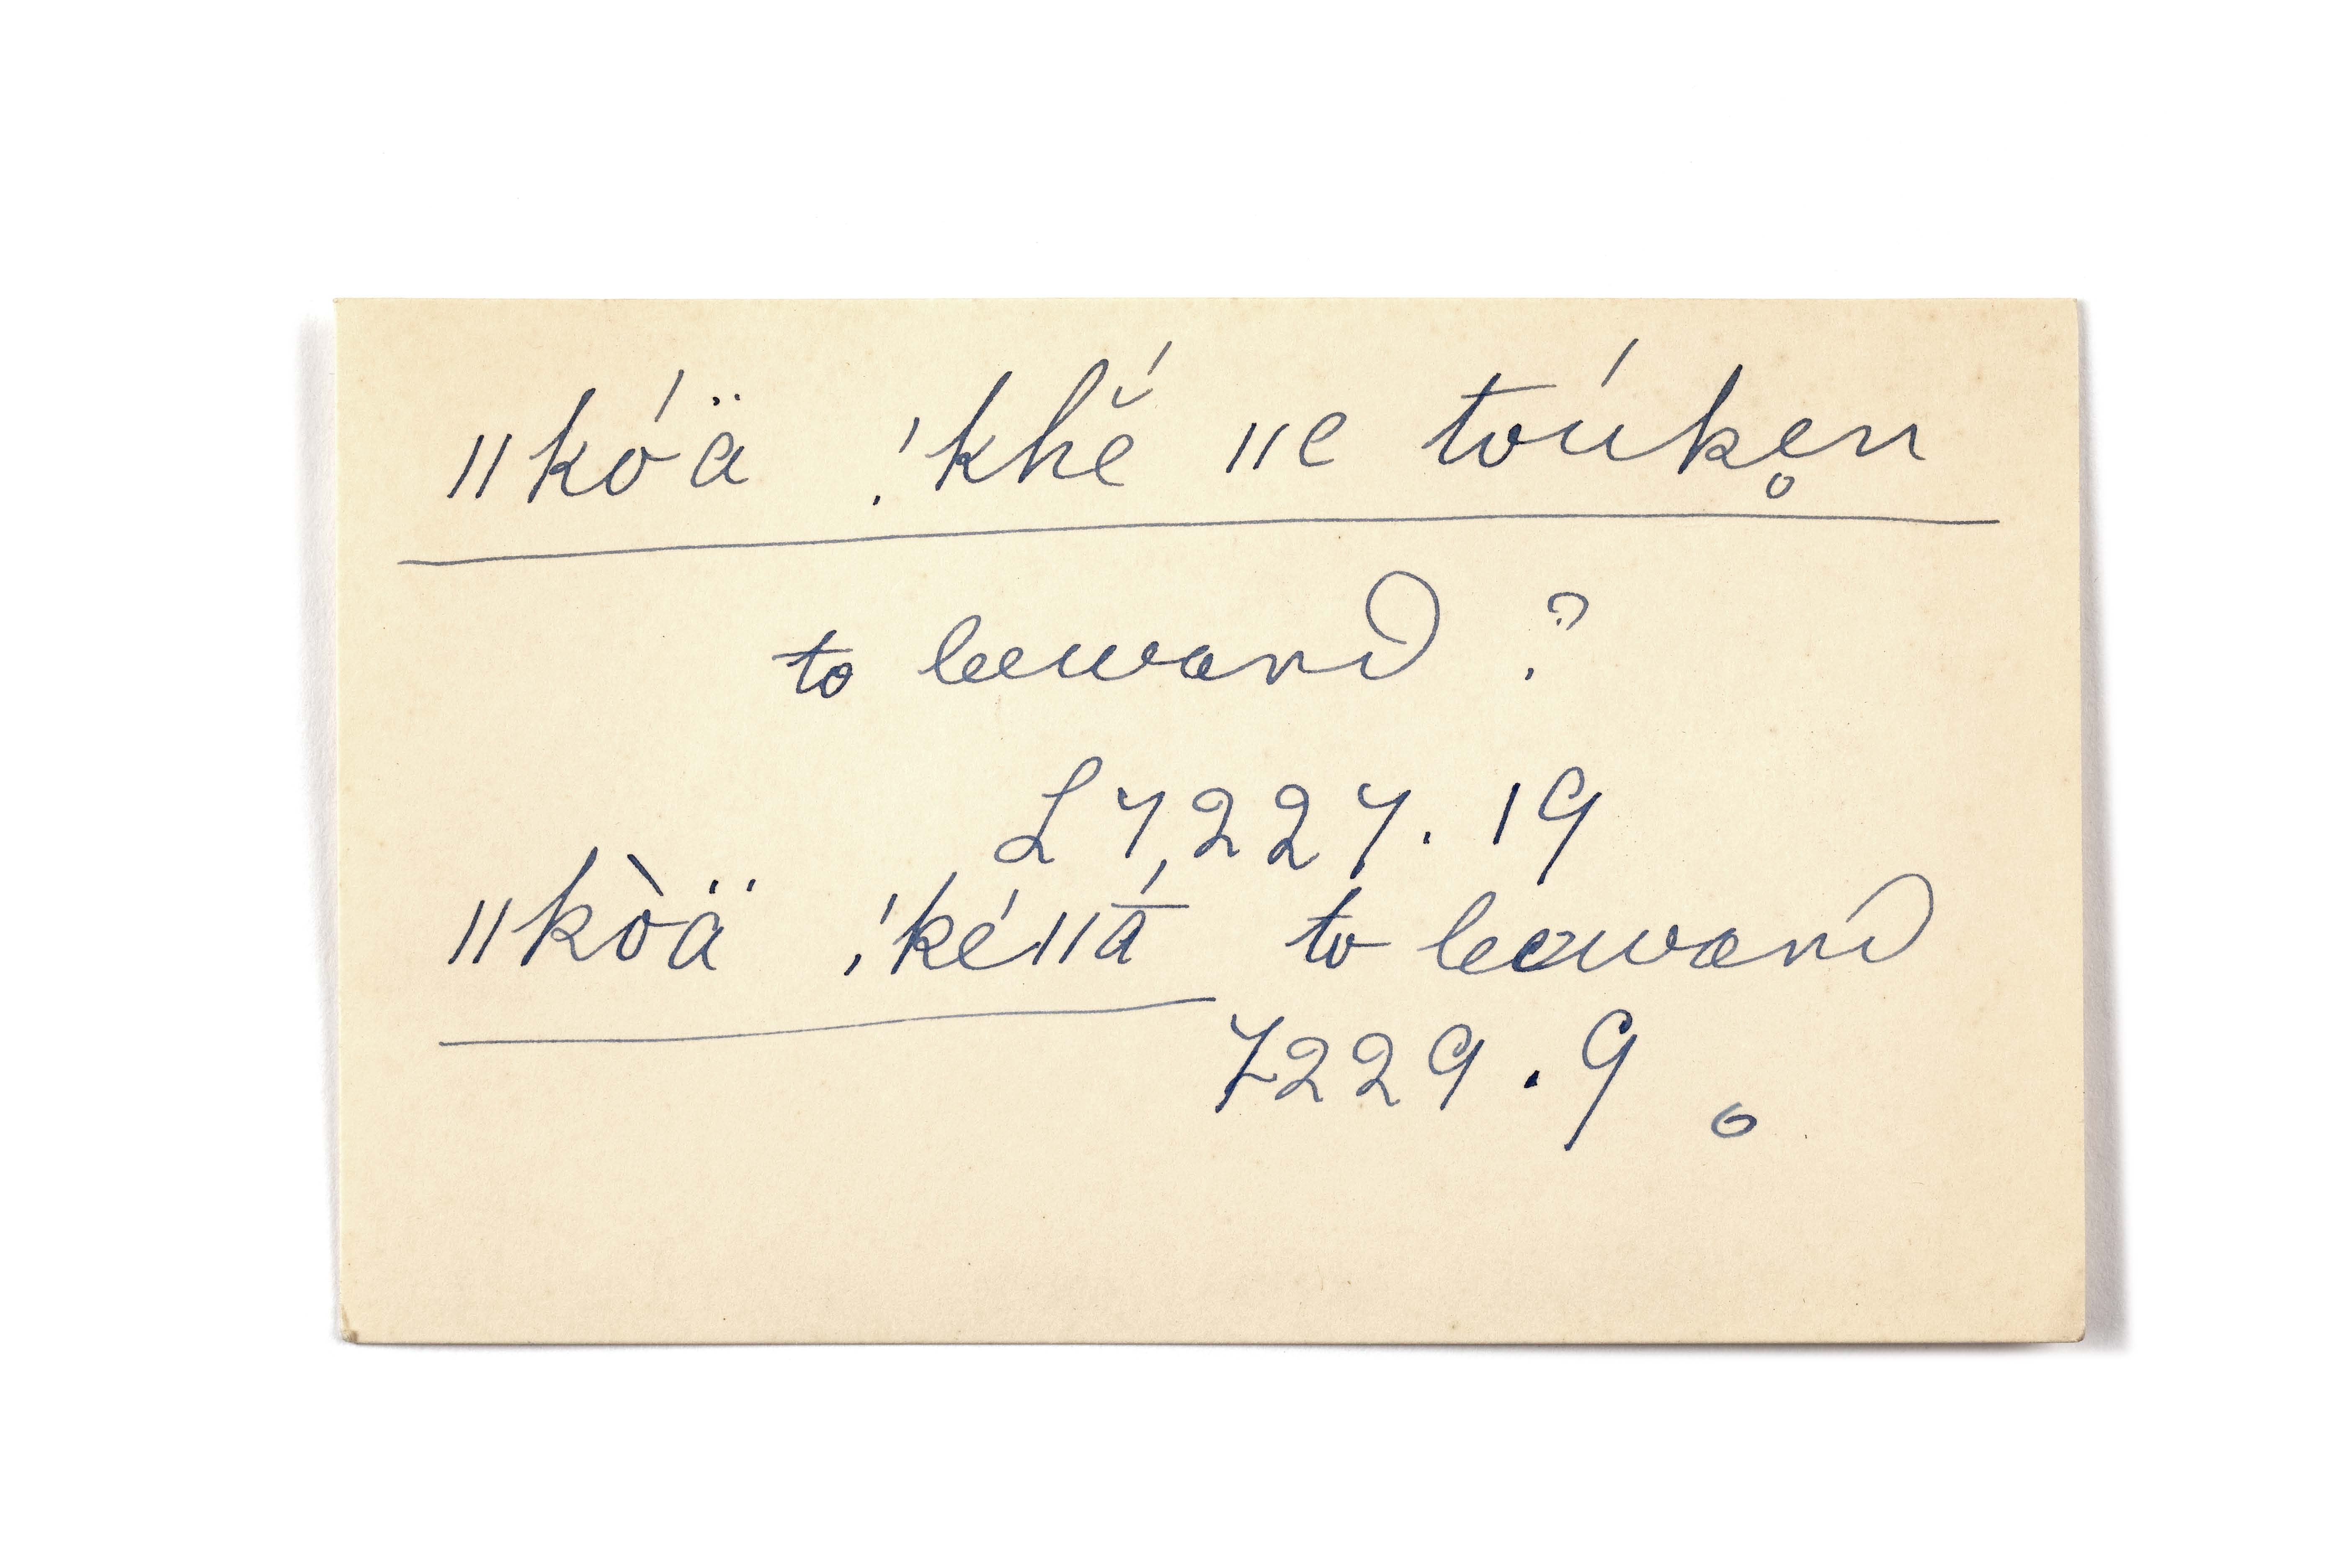 ǁkóä !khĕ́ ǁe toúke̥n
to leeward ?
L 7,227. 19
ǁkòä !kéǁā́ to leeward
7229. 9 o